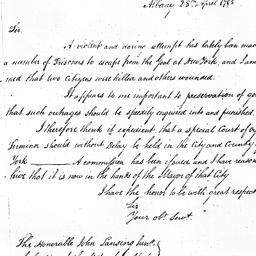 Albany 28th April 1795
Sir.
A violent and daring attempt has lately been made
a number of Prisoners to escape from the Goal at New York, and I am
med that two Citizens were killed and others wounded.
It appears to me important to preservation of go
that such outrages should be speedily enquired into and punished.
I therefore think it expedient, that a special Court of oy
Terminer should without Delay be held in the City and County
York A commission has been issued and I have reason
lieve that it is now in the hands of the Mayor of that City
I have the honor to be with great respect
Sir
Your Obt Servt.
The Honorable John Lansing Junr.